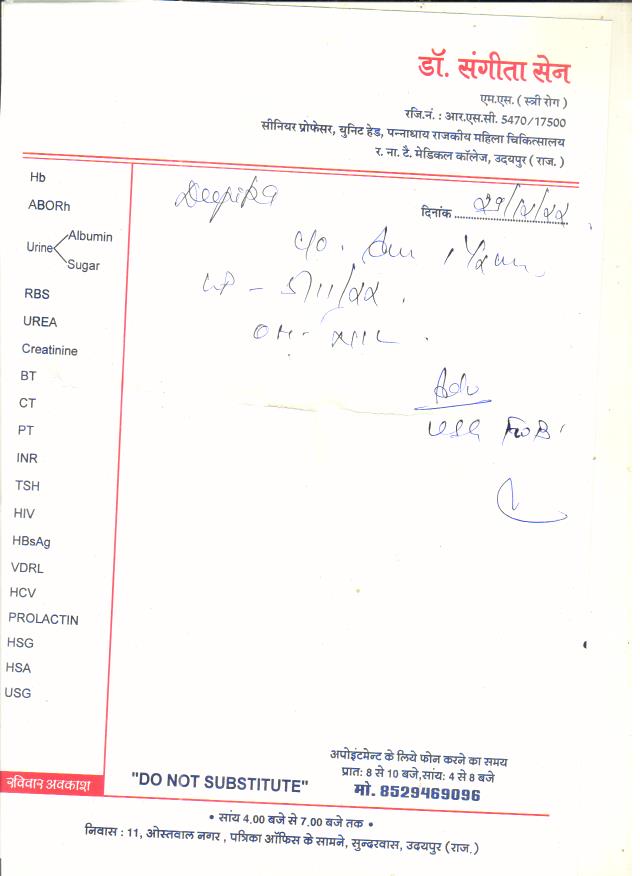 डॉ. संगीता सेन
एम.एस. ( स्त्री रोग )
रजि.नं. : आर.एस.सी. 5470/17500
सीनियर प्रोफेसर, युनिट हेड, पन्नाधाय राजकीय महिला चिकित्सालय
र. ना. टै. मेडिकल कॉलेज, उदयपुर ( राज. )
Deepika
दिनांक
C/O.
LMP - 5/11/22 .
OH -
Adv
USG FWB
Hb
ABORh
Urine
Albumin
Sugar
RBS
UREA
Creatinine
BT
CT
PT
INR
TSH
HIV
HBsAg
VDRL
HCV
PROLACTIN
HSG
HSA
USG
रविवार अवकाश
"DO NOT SUBSTITUTE"
अपोइंटमेन्ट के लिये फोन करने का समय
प्रात: 8 से 10 बजे,सांय: 4 से 8 बजे
मो. 8529469096
• सांय 4.00 बजे से 7.00 बजे तक •
निवास : 11, ओस्तवाल नगर , पत्रिका ऑफिस के सामने, सुन्दरवास, उदयपुर (राज.)